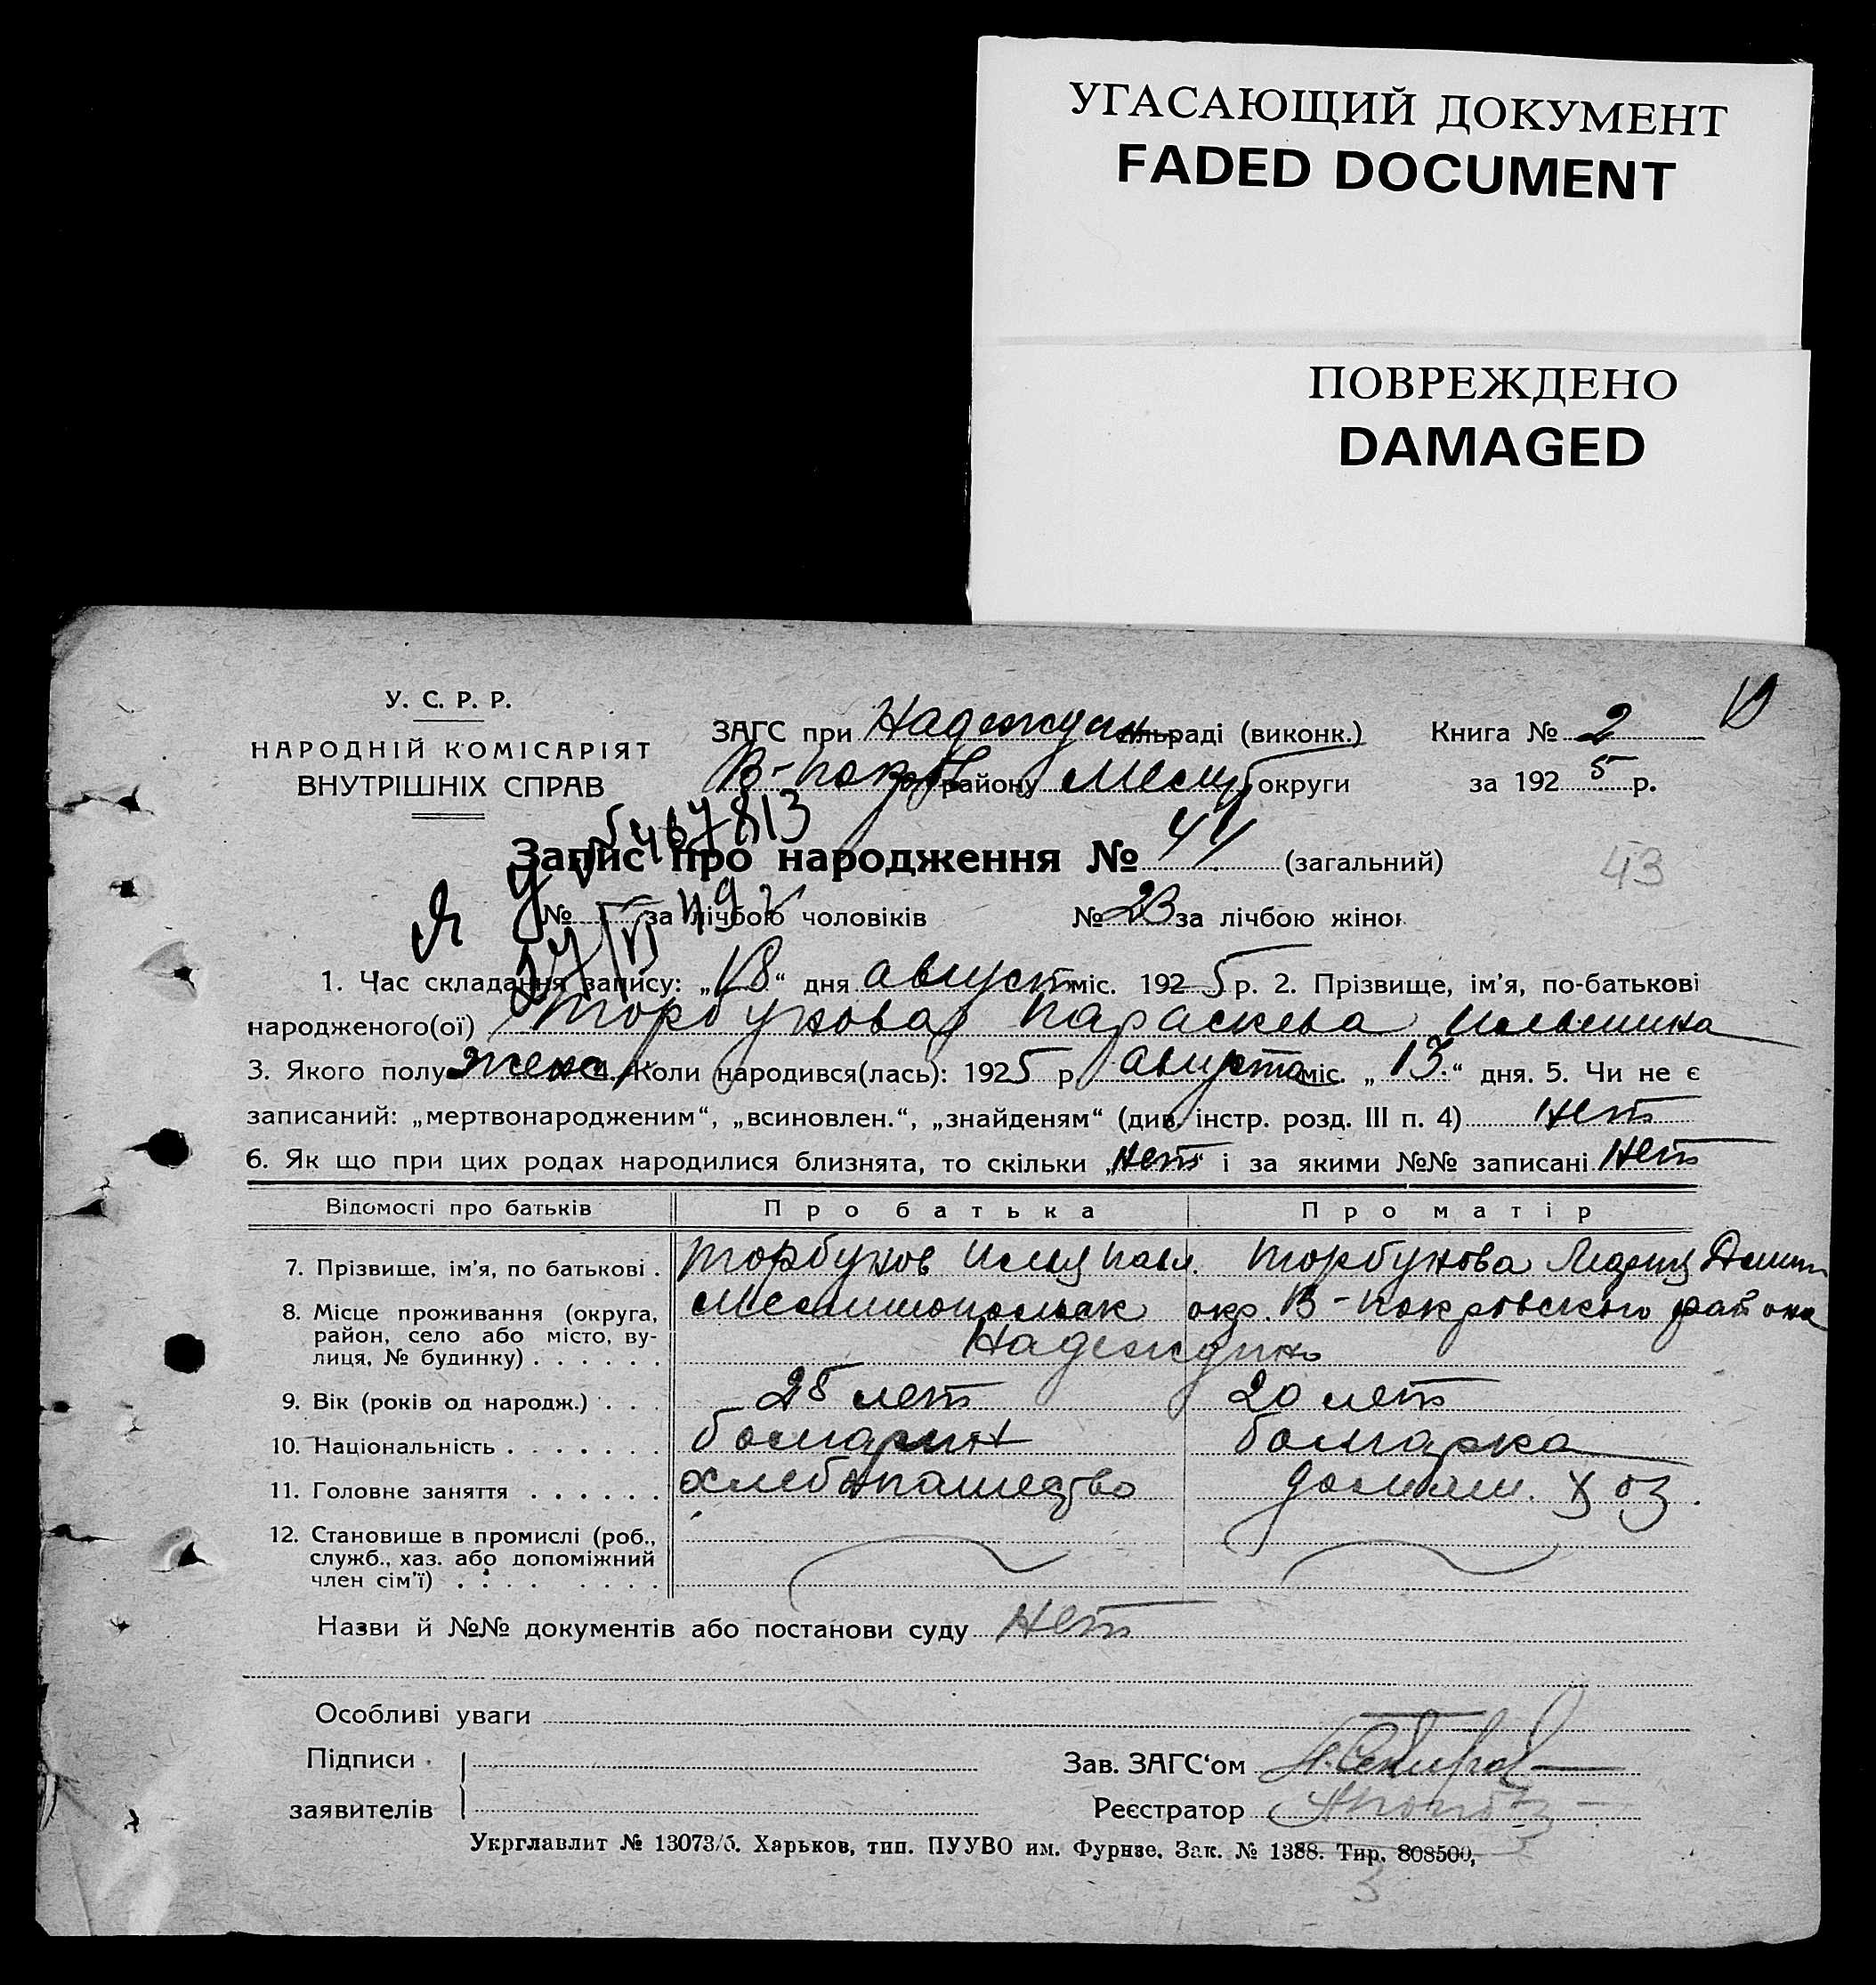 УГАСАЮЩИЙ ДОКУМЕНТ
FADED DOCUMENT
ПОВРЕЖДЕНО
DAMAGED
У. С. Р. Р.
НАРОДНІЙ КОМІСАРІЯТ
ВНУТРІШНІХ СПРАВ
ЗАГС при Надеждин раді (виконк.)
В-Покров району Мелит округи
Книга № 2
за 1925 р.
467813
Запис про народження № 44 (загальний)
43
№ за лічбою чоловіків № 23 за лічбою жінок
1. Час складання запису: „18“ дня август міс. 1925 р. 2. Прізвище, ім'я, по-батькові
народженого(ої) Торбунова Параскева Ильинина
3. Якого полу жен 4. Коли народився(лась): 1925 р. августа міс. „13“ дня. 5. Чи не є
записаний: „мертвонародженим“, „всиновлен.“, „знайденям“ (див. інстр. розд. III п. 4) нет
6. Як що при цих родах народилися близнята, то скільки „нет“ і за якими №№ записані нет
Відомості про батьків Про батька Про матір
7. Прізвище, ім'я, по батькові . Торбунов Илья Павл. Торбунова
8. Місце проживання (округа, район, село або місто, вулиця, № будинку) . . . . . . Мелитопольск окр. В-Покровского района
Надеждино
9. Вік (років од народж.) . . . 28 лет 20 лет
10. Національність . . . . . . . болгарин болгарка
11. Головне заняття . . . . . . хлебопашество домашн. хоз.
12. Становище в промислі (роб., служб., хаз. або допоміжний член сім'ї) . . . . . . . .
Назви й №№ документів або постанови суду нет
Особливі уваги
Підписи
заявителів
Зав. ЗАГС‘ом
Реєстратор
Укрглавлит № 13073/б. Харьков, тип. ПУУВО им. Фурнзе. Зак. № 1388. Тир. 808500,
3